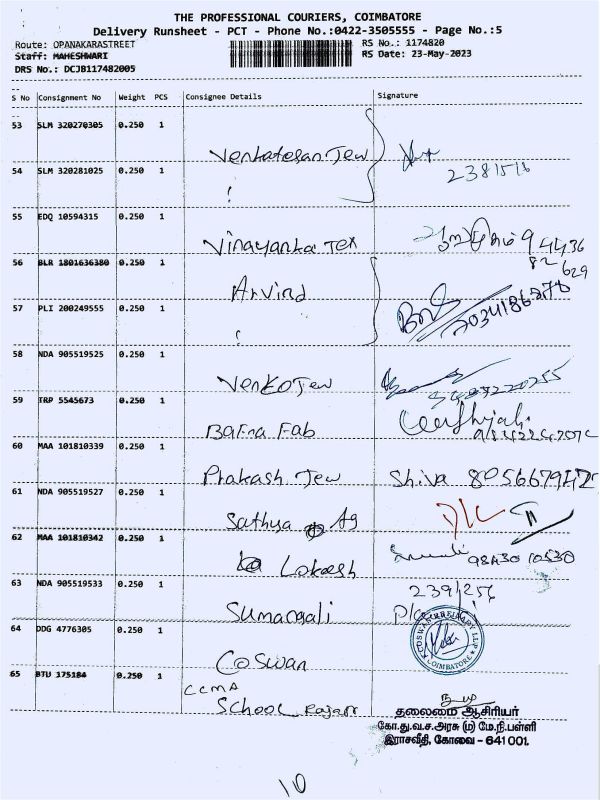 THE PROFESSIONAL COURIERS, COIMBATORE
Delivery Runsheet - PCT - Phone No.:0422-3505555 - Page No.:5
Route: OPANAKARASTREET
RS No.: 1174820
Staff: MAHESHWARI
RS Date: 23-May-2023
DRS No.: DCJB117482005
S No Consignment No Weight PCS Consignee Details Signature
53 SLM 320270305 0.250 1 Venkatesan Jew
54 SLM 320281025 0.250 1 2381516
55 EDQ 10594315 0.250 1 Vinayanka Tex
56 BLR 1801636380 0.250 1 Arvind
57 PLI 200249555 0.250 1
58 NDA 905519525 0.250 1 Venko Jew
59 TRP 5545673 0.250 1 Bafna Fab
60 MAA 101810339 0.250 1 Prakash Jew Shiva
61 NDA 905519527 0.250 1 Sathya Ag D/C
62 MAA 101810342 0.250 1 Lokesh 98430 10530
63 NDA 905519533 0.250 1 Sumangali 239/256
D/C
64 DDG 4776305 0.250 1 Coswan
COIMBATORE
65 BTU 175184 0.250 1 CCMA
School Rajan
தலைமை ஆசிரியர்
கோ.து.வ.ச.அரசு (ம) மே.நி.பள்ளி
இராசவீதி, கோவை - 641 001.
10